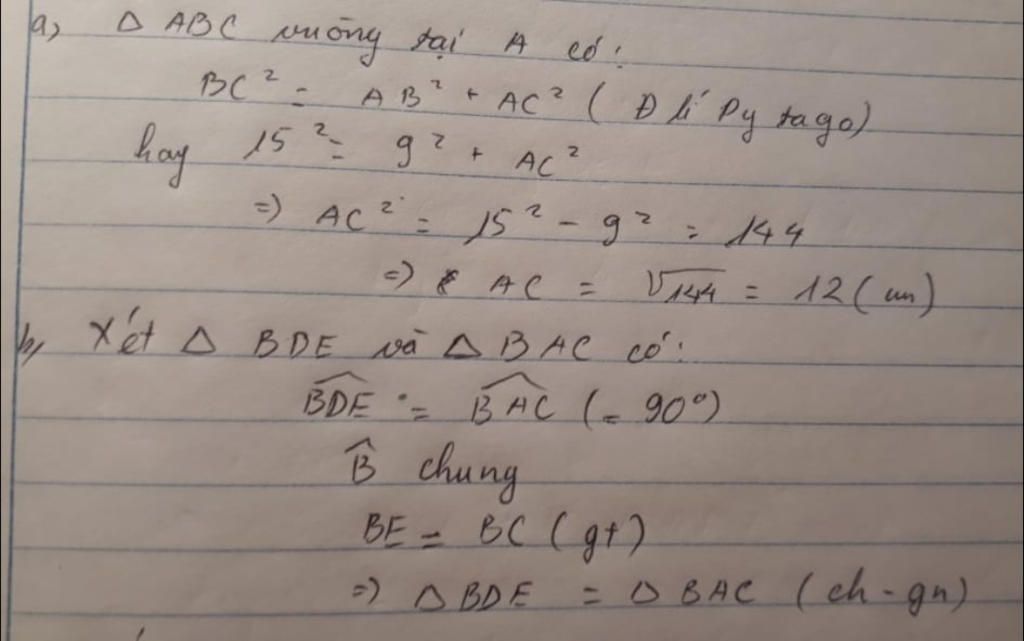 a, Δ ABC vuông tại A có:
BC² = AB² + AC² (Đ lí Py tago)
hay 15² = 9² + AC²
=> AC² = 15² - 9² = 144
=> AC = √144 = 12 (cm)
b, Xét Δ BDE và Δ BAC có:
\widehat{BDE} = \widehat{BAC} (= 90°)
\widehat{B} chung
BE = BC (gt)
=> Δ BDE = Δ BAC (ch - gn)